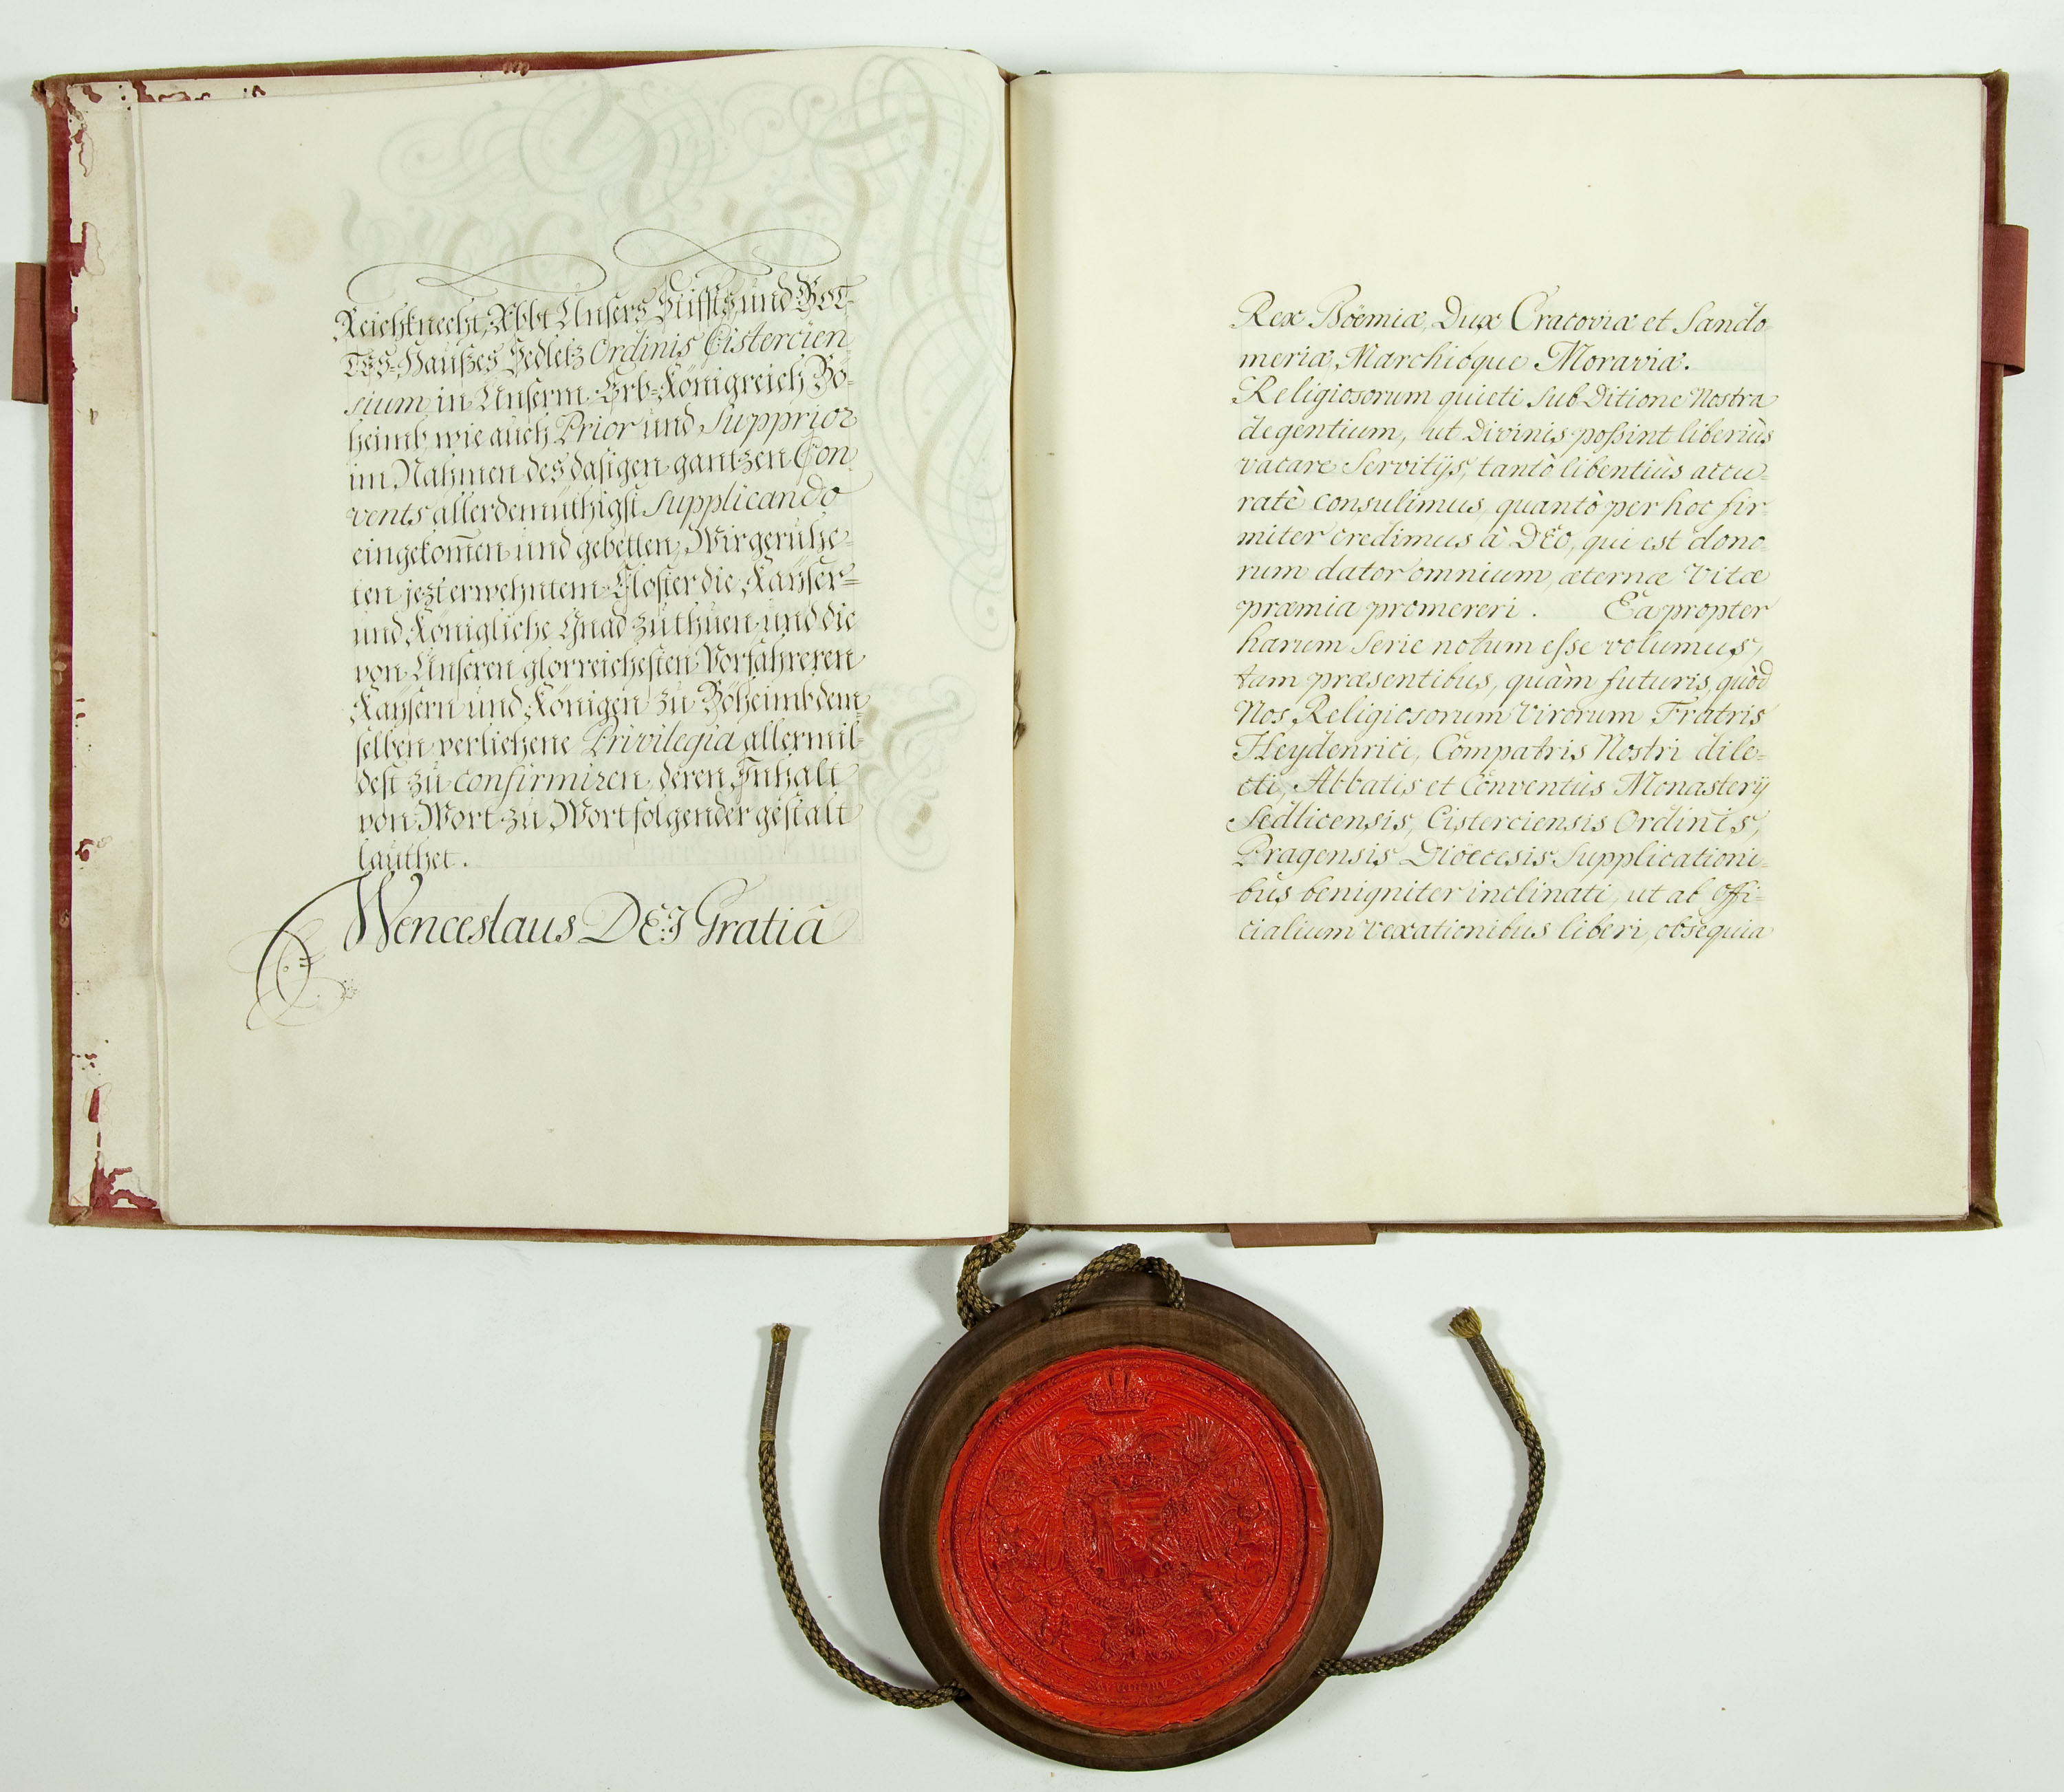 Reichknecht, Abbt Unsers Stiffts und GOT-
TES-Haußes Sedletz Ordinis Cistercien
sium, in Unserm Erb-Königreich Bö-
heimb, wie auch Prior und Supprior
im Nahmen des dasigen gantzen Con
vents allerdemüthigst supplicando
eingekom̅en und gebetten, Wir geruhe-
ten jezt erwehntem Closter die Kayser-
und Königliche Gnad zu thuen, und die
von Unseren glorreichesten Vorfahreren
Kaysern und Königen zu Böheimb dem
selben verliehene Privilegia allermil-
dest zu confirmiren, deren Inhalt
von Wort zu Wort folgender gestalt
lauthet.
Wenceslaus DEI Gratiâ
Rex Böemiæ, Dux Cracoviæ et Sando-
meriæ, Marchióque Moraviæ.
Religiosorum quieti sub Ditione Nostra
degentium, ut Divinis poßint liberiùs
vacare Servitijs, tantò libentiùs accu-
ratè consulimus, quantò per hoc fir-
miter credimus à DEO, qui est dono-
rum dator omnium, æternæ Vitæ
præmia promereri. Eapropter
harum serie notum esse volumus,
tam præsentibus, quàm futuris, quòd
Nos Religiosorum Virorum Fratris
Heydenrici, Compatris Nostri dile-
cti, Abbatis et Conventûs Monasterij
Sedlicensis, Cisterciensis Ordinis,
Pragensis Dioecesis Supplicationi-
bus benigniter inclinati, ut ab Offi-
cialium vexationibus liberi, obsequia